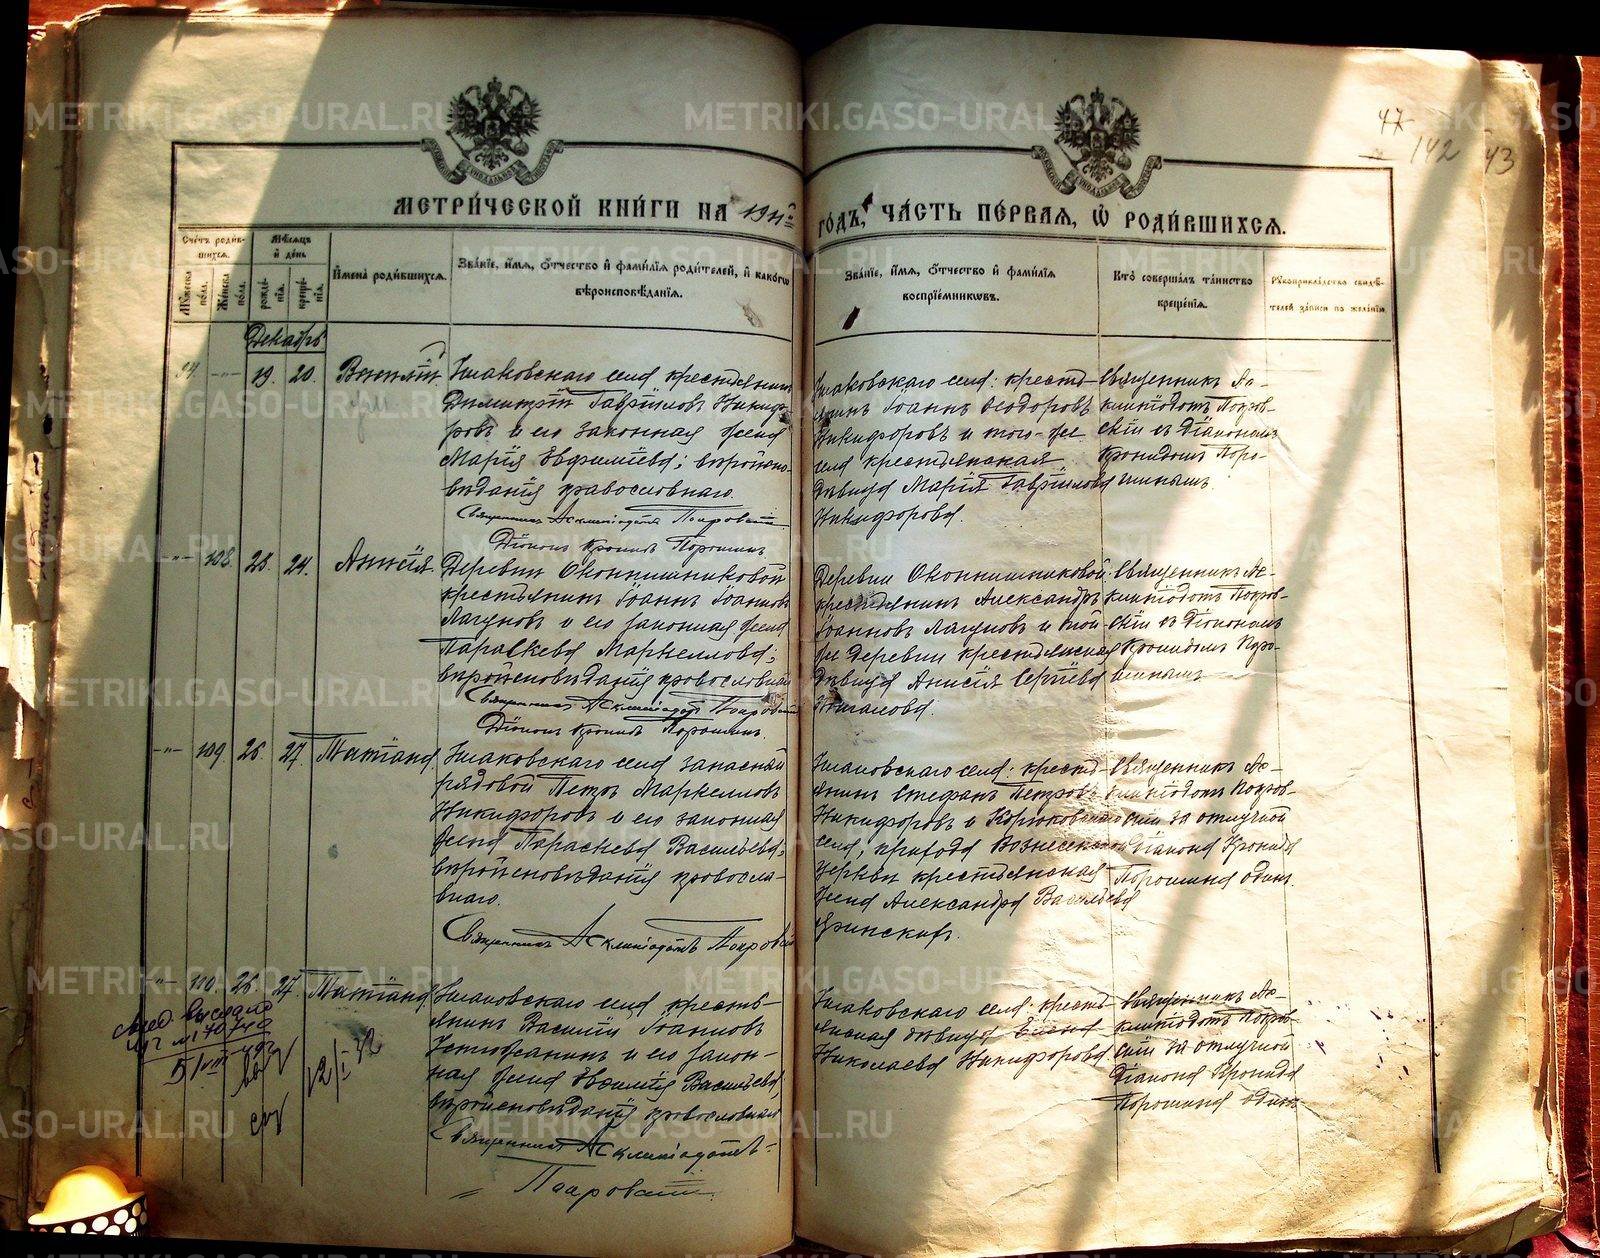 47
142 43
МЕТРИЧЕСКОЙ КНИГИ НА 1911й ГОДЪ, ЧАСТЬ ПЕРВАЯ, Ѡ РОДИВШИХСЯ.
Счетъ родившихся.
Мужеска пола.
Женска пола.
Мѣсяцъ и день
рожденія.
крещенія.
Имена родившихся.
Званіе, имя, ѻтчество и фамилія родителей, и какогѡ вѣроисповѣданія.
Званіе, имя, ѻтчество и фамилія воспріемникѡвъ.
Кто совершалъ таинство крещенія.
Рукоприкладство свидѣтелей записи по желанію
Декабрь
94 -"- 19. 20.
Ушаковскаго села крестьянинъ
Димитрій Гавріиловъ Никифо-
ровъ и его законная жена
Марія Евфиміева; вѣроиспо-
вѣданія православнаго.
Священникъ Асклипіодотъ Покровскій
Діаконъ Кронидъ Порошинъ.
Ушаковскаго села: кресть-
янинъ Іоаннъ Ѳеодоровъ
Никифоровъ и того-же
села крестьянская
дѣвица Марія Гавріилова
Никифорова.
Священникъ Ас-
клипіодотъ Покров-
скій съ Діакономъ
Кронидомъ Поро-
шинымъ.
-"- 108. 23. 24. Анисія
Деревни Оконишниковой
крестьянинъ Іоаннъ Іоанновъ
Лагуновъ и его законная жена
Параскева Маркеллова;
вѣроисповѣданія православнаго
Священникъ Асклипіодотъ Покровскій
Діаконъ Кронидъ Порошинъ.
Деревни Оконишниковой:
крестьянинъ Александръ
Іоанновъ Лагуновъ и той-
же деревни крестьянская
дѣвица Анисія Сергіева
Священникъ Ас-
клипіодотъ Покров-
скій съ Діакономъ
Кронидомъ Поро-
шинымъ
-"- 109. 26 27. Татіана
Ушаковскаго села запасный
рядовой Петръ Маркелловъ
Никифоровъ и его законная
жена Параскева Васильева;
вѣроисповѣданія правосла-
внаго.
Священникъ Асклипіодотъ Покровскій
Ушаковскаго села: кресть-
янинъ Стефанъ Петровъ
Никифоровъ и
села, прихода Вознесенской
церкви крестьянская
жена Александра Васильева
Священникъ Ас-
клипіодотъ Покров-
скій за отлучкой
Діакона Кронида
Порошина одинъ.
-"- 110. 26. 27. Татіана
Ушаковскаго села кресть-
янинъ Василій Іоанновъ
Устюжанинъ и его закон-
ная жена Васильева;
вѣроисповѣданія православнаго
Священникъ Асклипіодотъ
Покровскій.
Ушаковскаго села: кресть-
янская дѣвица Елена
Николаева Никифорова
Священникъ Ас-
клипіодотъ Покров-
скій за отлучкой
Діакона Кронида
Порошина одинъ
12/I 32
METRIKI.GASO-URAL.RU